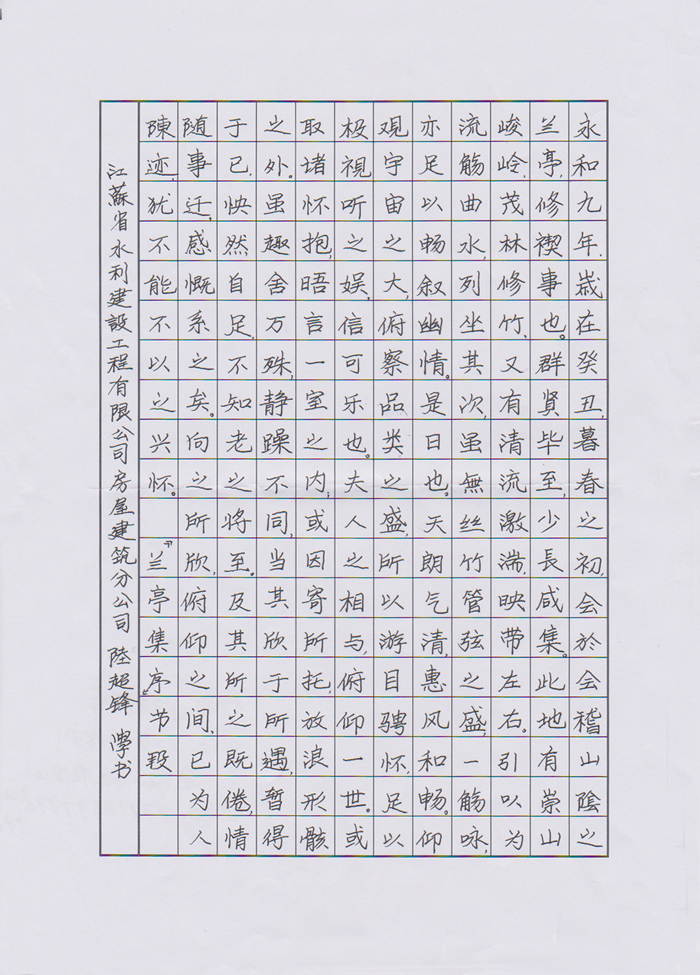 永和九年.歲在癸丑,暮春之初,会於会稽山陰之
兰亭,修禊事也。群贤毕至,少長咸集。此地有崇山
峻岭,茂林修竹,又有清流激湍,映带左右。引以为
流觞曲水,列坐其次,虽無丝竹管弦之盛,一觞咏,
亦足以畅叙幽情。是日也。天朗气清,惠风和畅。仰
观宇宙之大,俯察品类之盛,所以游目骋怀,足以
极視听之娱,信可乐也。夫人之相与,俯仰一世。或
取诸怀抱,晤言一室之内,或因寄所托,放浪形骸
之外。虽趣舍万殊,静躁不同,当其欣于所遇,暂得
于已,怏然自足,不知老之将至。及其所之既倦,情
随事迁,感慨系之矣。向之所欣,俯仰之间,已为人
陳迹,犹不能不以之兴怀。 兰亭集序节段
江蘇省水利建設工程有限公司房屋建筑分公司 陸超锋 學书